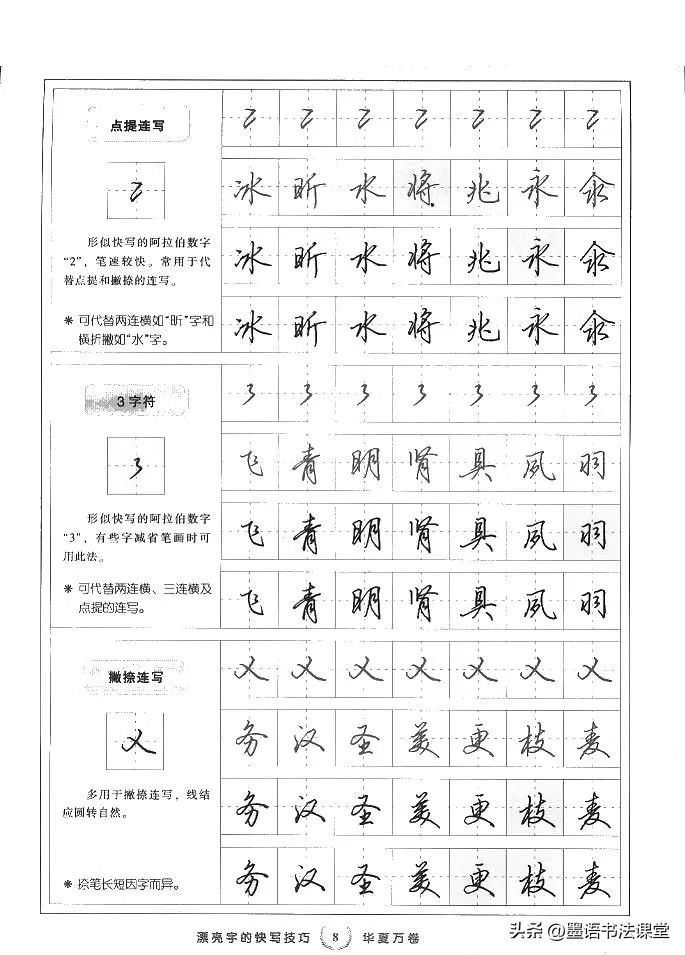 点提连写
形似快写的阿拉伯数字
“2”，笔速较快。常用于代
替点提和撇捺的连写。
※ 可代替两连横如“昕”字和
横折撇如“水”字。
冰 昕 水 将 兆 永 汆
冰 昕 水 将 兆 永 汆
冰 昕 水 将 兆 永 汆
3字符
3 3 3 3 3 3 3
3
形似快写的阿拉伯数字
“3”，有些字减省笔画时可
用此法。
※ 可代替两连横、三连横及
点提的连写。
飞 青 明 肾 具 夙 羽
飞 青 明 肾 具 夙 羽
飞 青 明 肾 具 夙 羽
撇捺连写
多用于撇捺连写，线结
应圆转自然。
※ 捺笔长短因字而异。
务 汉 圣 美 更 枝 麦
务 汉 圣 美 更 枝 麦
务 汉 圣 美 更 枝 麦
漂亮字的快写技巧 8 华夏万卷
头条@墨语书法课堂